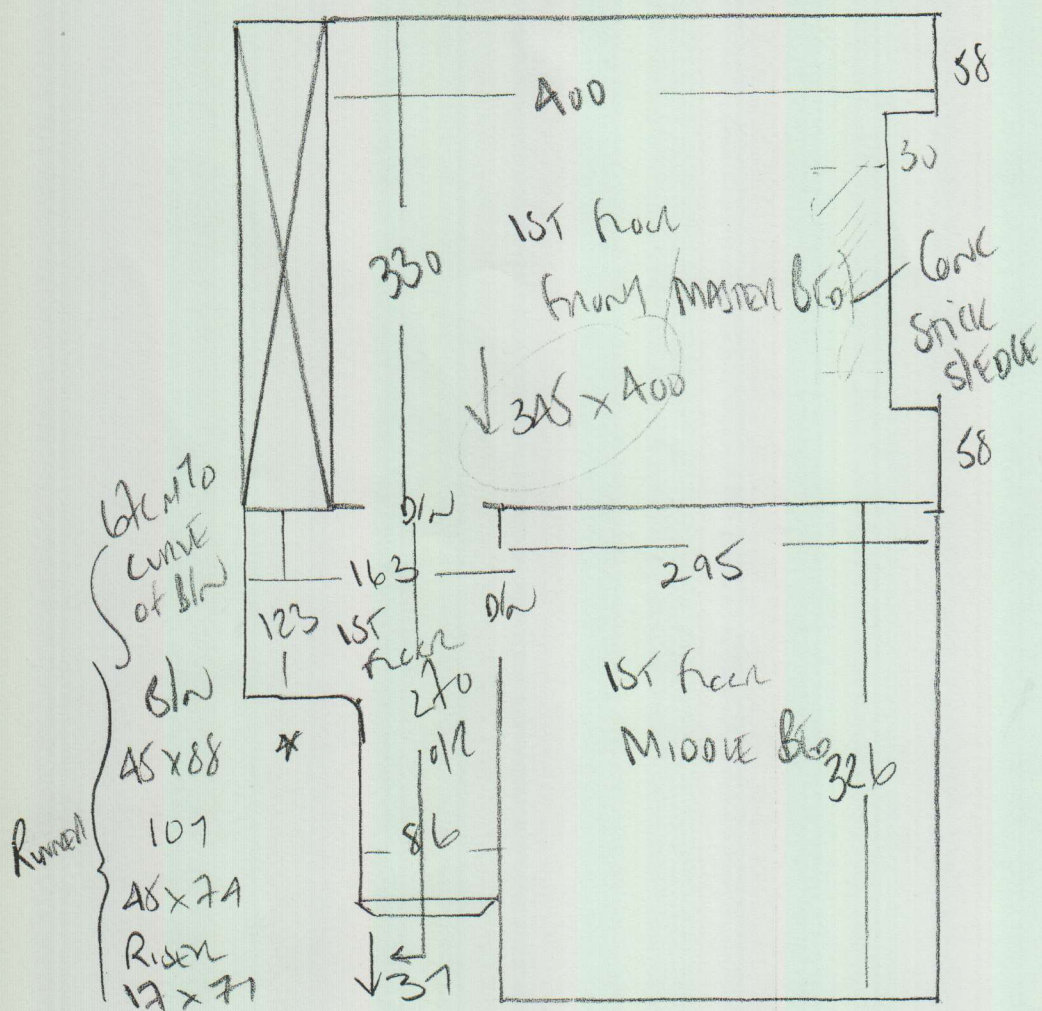 58
400
30
1ST FLOOR
330
FRONT / MASTER BED
CONC
STICK
345 x 400
58
67CM TO
CURVE
OF B/N
D/N
163
295
123
1ST
FLOOR
D/N
270
O/R
1ST FLOOR
MIDDLE BED
326
B/N
*
45 x 88
RUNNER
107
86
45 x 74
RISER
17 x 71
37